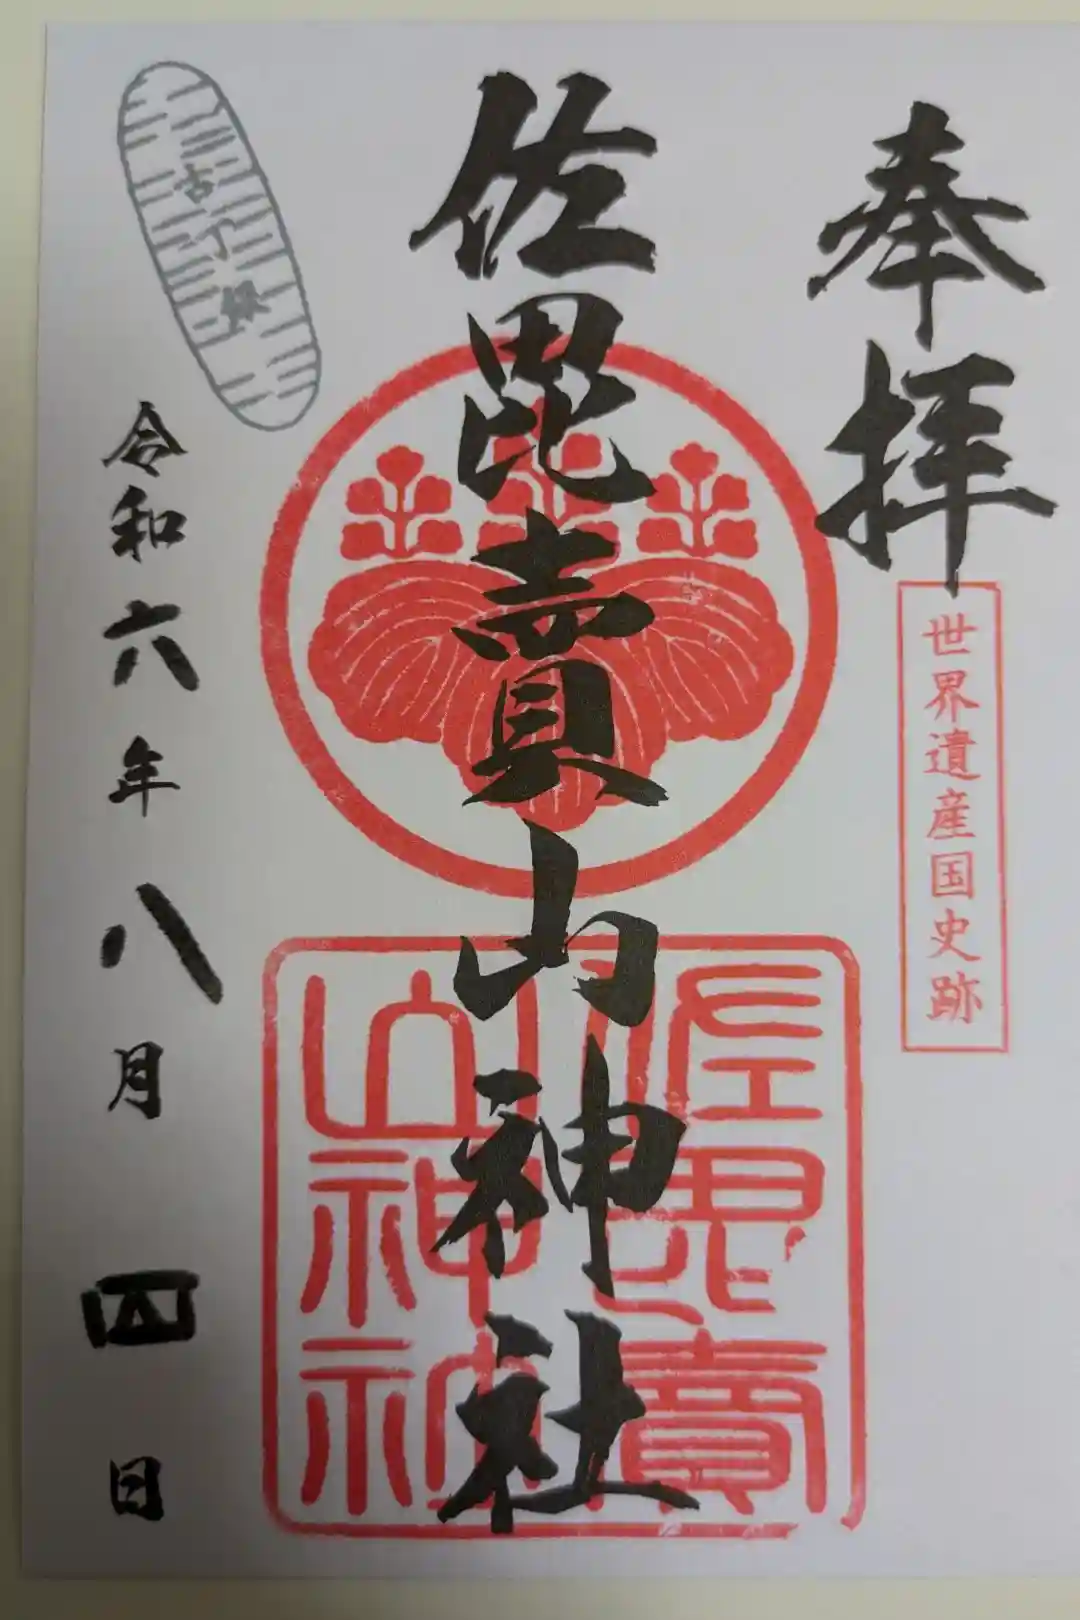 奉拝
世界遺産国史跡
佐毘売山神社
佐毘売
山神社
古丁銀
令和六年八月四日